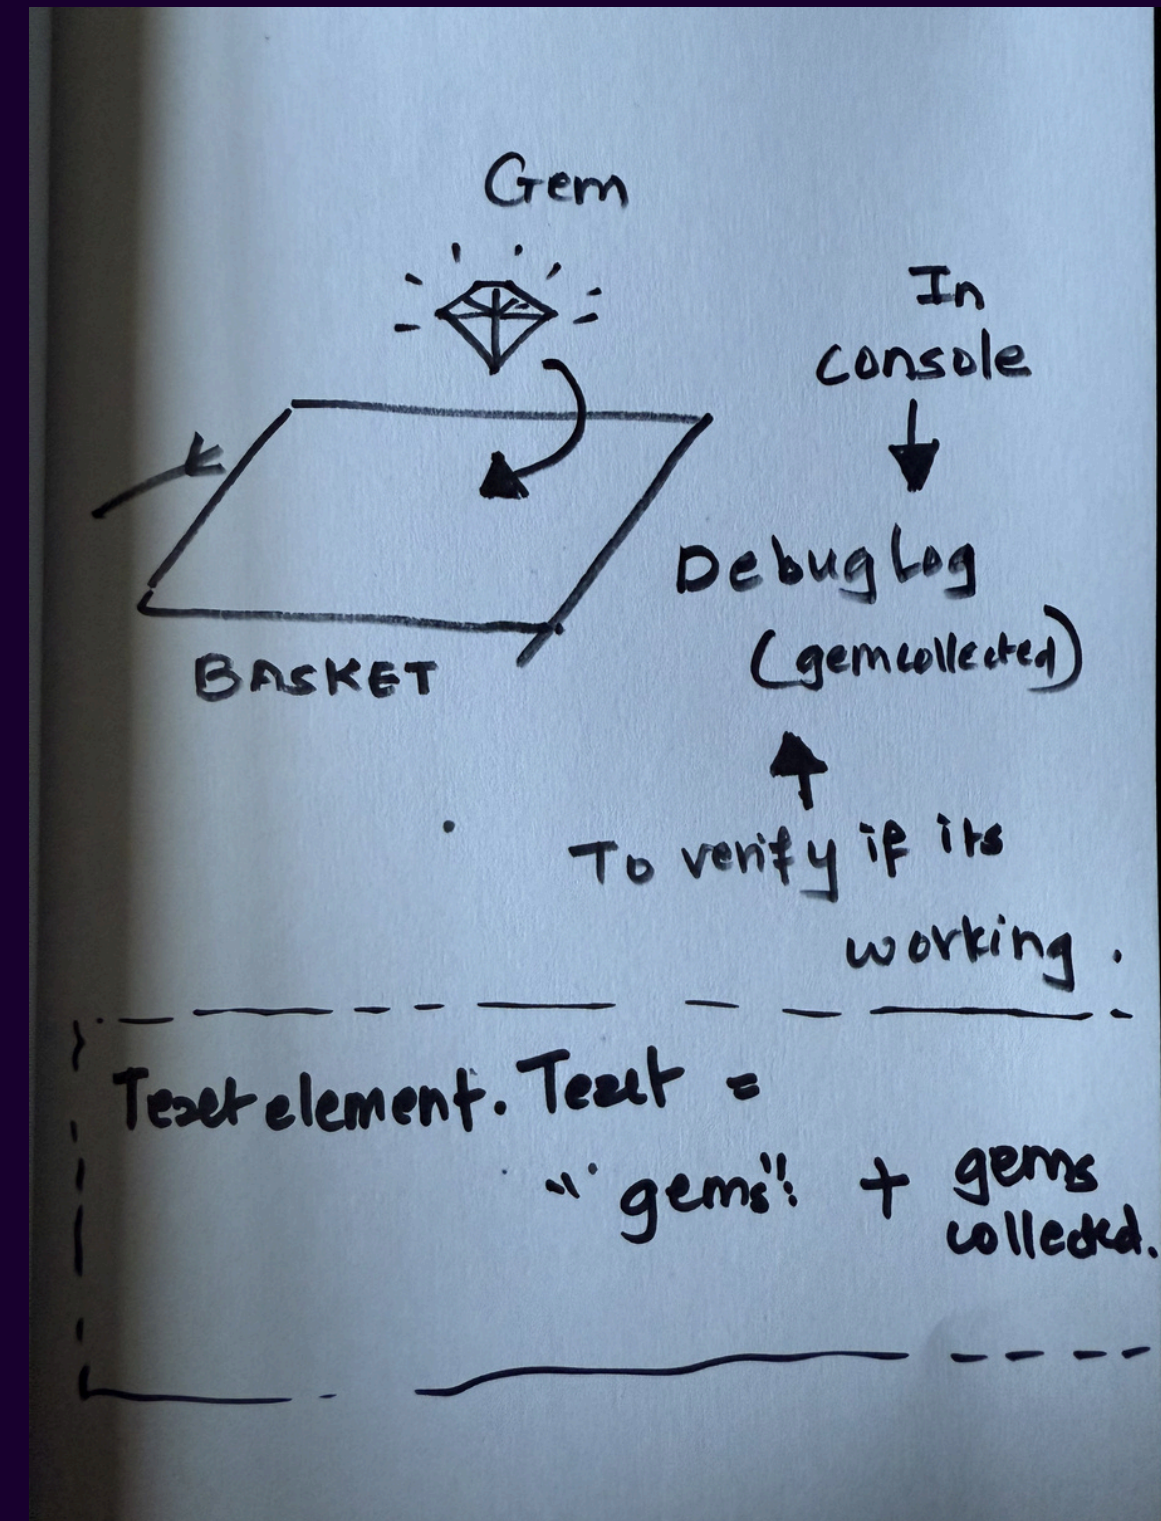 Gem
In
console
Debug Log
(gemcollected)
BASKET
To verify if its
working.
Textelement. Text =
"gems": + gems
collected.